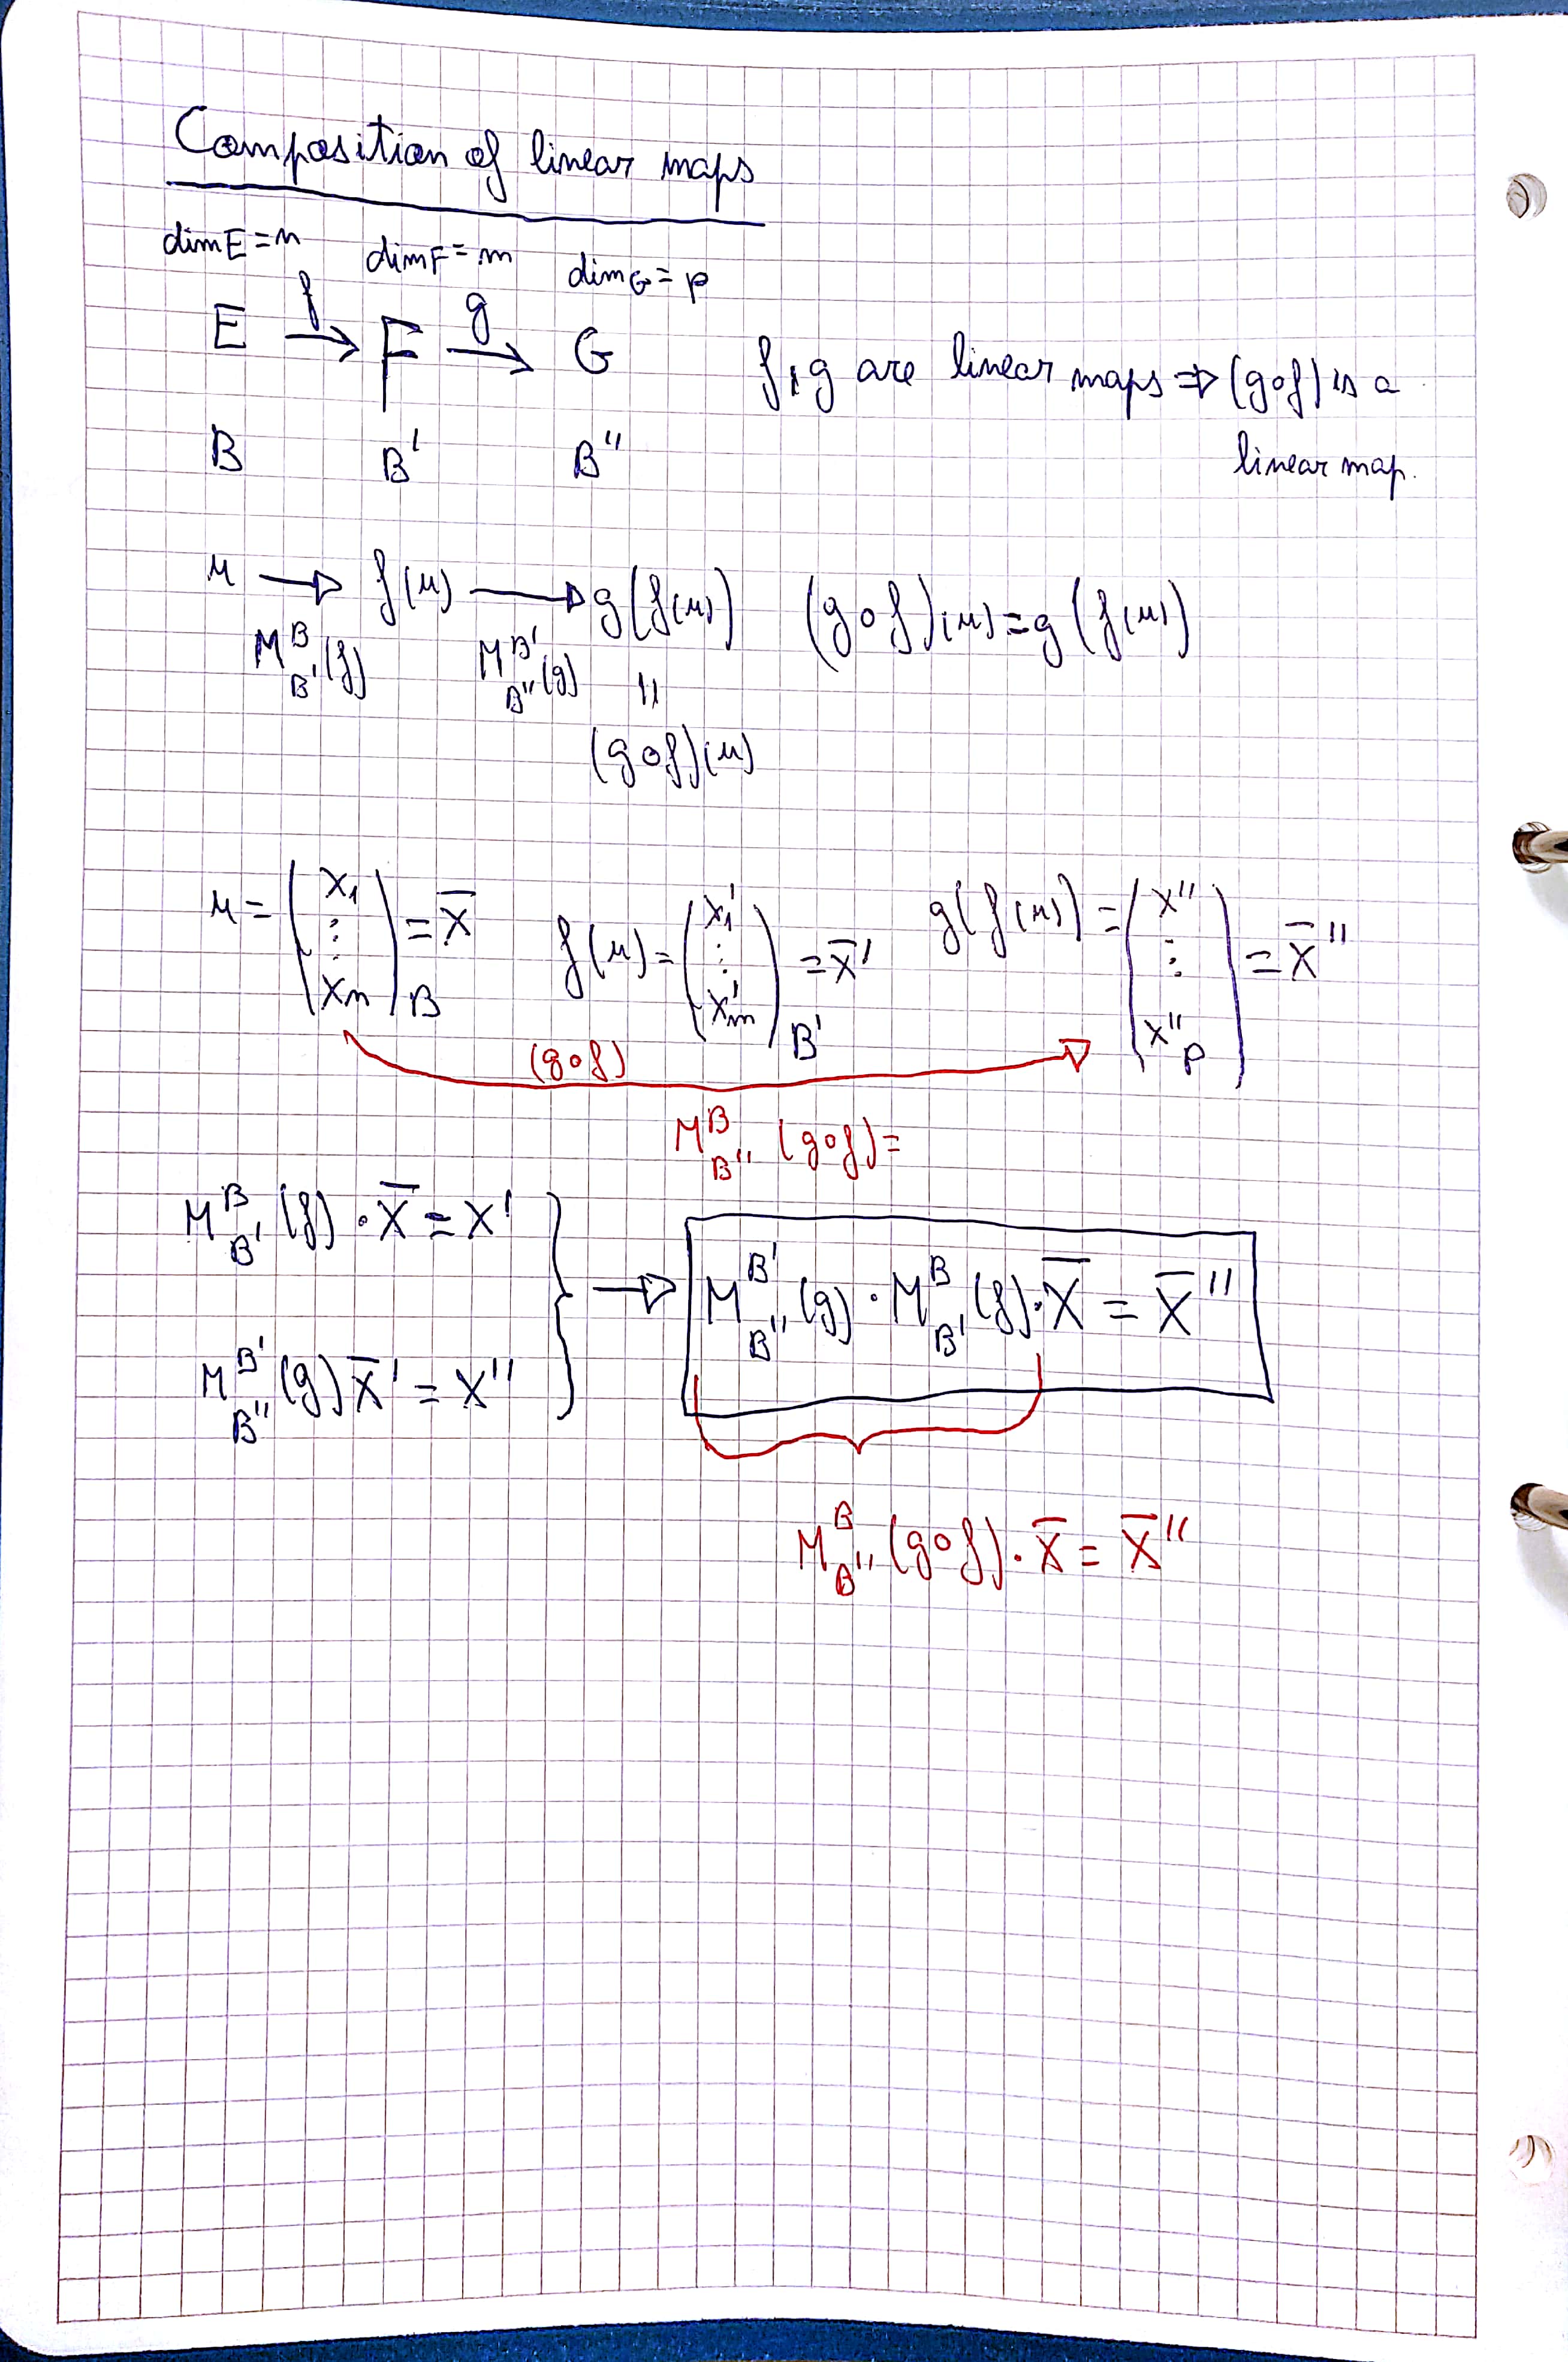 Composition of linear maps
dim E = n dim F = m dim G = p
E —f→ F —g→ G f, g are linear maps ⇒ (g∘f) is a
B B' B'' linear map.
u → f(u) → g(f(u)) (g∘f)(u) = g(f(u))
M^B_B'(f) M^B'_B''(g) ||
(g∘f)(u)
u = (x₁ ⋮ xₙ)_B = X̅ f(u) = (x₁' ⋮ x'ₘ)_B' = X̅' g(f(u)) = (x'' ⋮ x''_p) = X̅''
(g∘f)
M^B_B''(g∘f) =
M^B_B'(f) · X̅ = X'
M^B'_B''(g) X̅' = X''
→ M^B'_B''(g) · M^B_B'(f) · X̅ = X̅''
M^B_B''(g∘f) · X̅ = X̅''